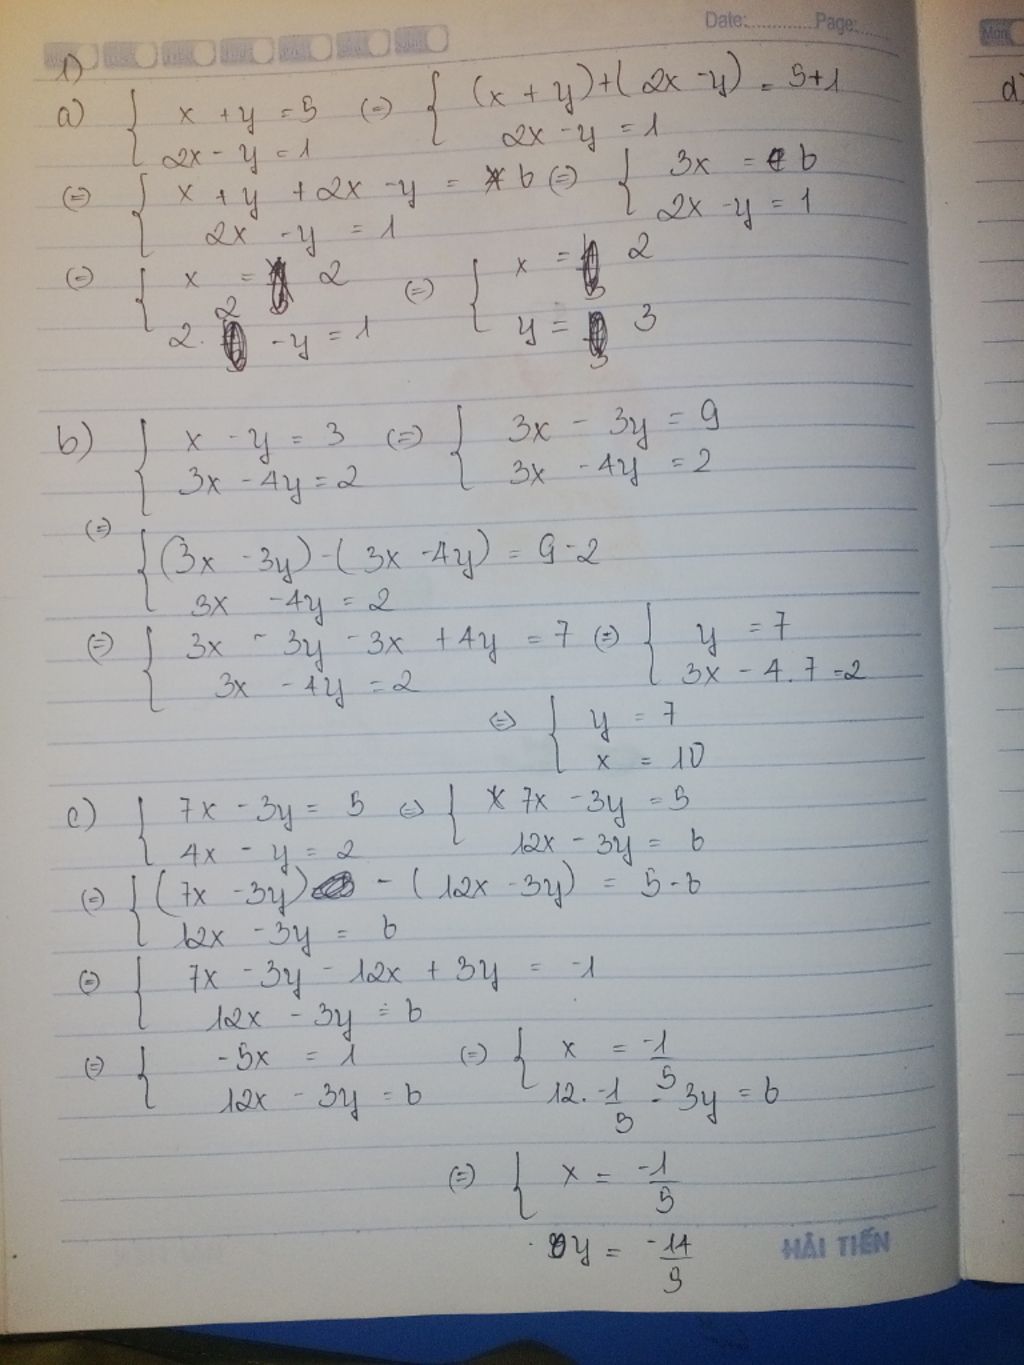 Date:.............Page:......
Mon
1)
d)
a) { x + y = 5 (=) { (x + y) + (2x - y) = 5+1
2x - y = 1 2x - y = 1
(=) { x + y + 2x - y = 6 (=) { 3x = 6
2x - y = 1 2x - y = 1
(=) { x = 2 (=) { x = 2
2. 2 - y = 1 y = 3
b) { x - y = 3 (=) { 3x - 3y = 9
3x - 4y = 2 3x - 4y = 2
(=)
{ (3x - 3y) - (3x - 4y) = 9 - 2
3x - 4y = 2
(=) { 3x - 3y - 3x + 4y = 7 (=) { y = 7
3x - 4y = 2 3x - 4.7 = 2
(=) { y = 7
x = 10
c) { 7x - 3y = 5 (=) { 7x - 3y = 5
4x - y = 2 12x - 3y = 6
(=) { (7x - 3y) - (12x - 3y) = 5 - 6
12x - 3y = 6
(=) { 7x - 3y - 12x + 3y = -1
12x - 3y = 6
(=) { -5x = 1 (=) { x = -1/5
12x - 3y = 6 12. -1/5 - 3y = 6
(=) { x = -1/5
y = -14/5
HẢI TIẾN